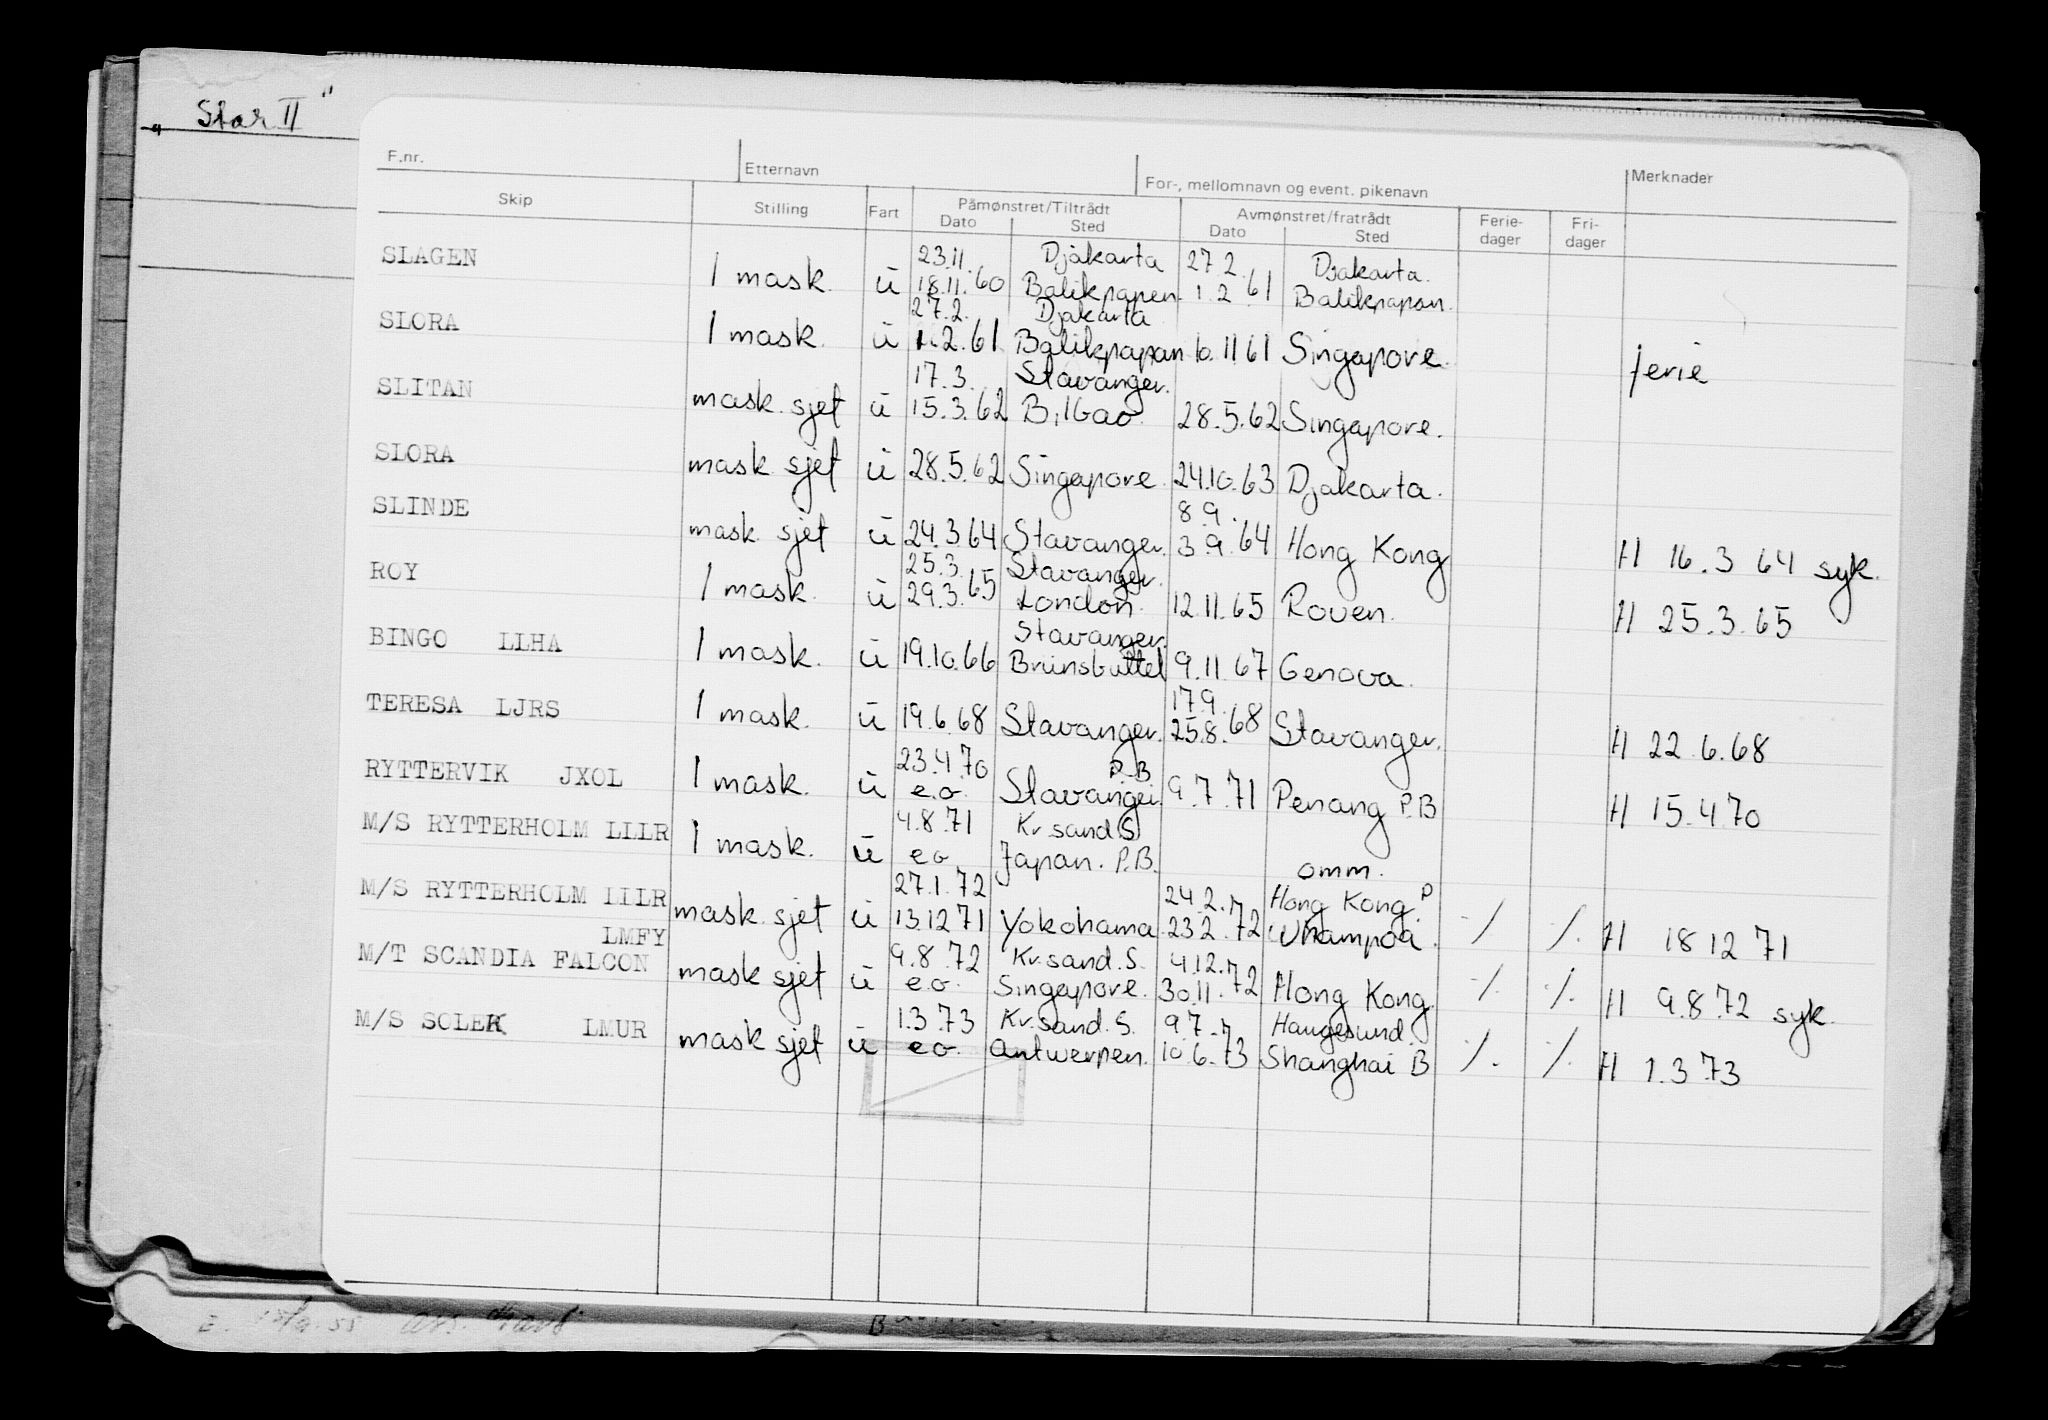 „ Star II "
F.nr. Etternavn For-, mellomnavn og event. pikenavn Merknader
Skip Stilling Fart Påmønstret/Tiltrådt Avmønstret/fratrådt Ferie- Fri-
Dato Sted Dato Sted dager dager
23.11. Djakarta 27.2. Djakarta.
SLAGEN 1 mask. ü 18.11.60 Balikpapen. 1.2.61 Balikpapan.
27.2. Djakarta
SLORA 1 mask. ü 1.2.61 Balikpapan 10.11 61 Singapore. ferie
17.3. Stavanger.
SLITAN mask. sjet ü 15.3.62 Bilbao. 28.5.62 Singapore.
SLORA mask sjef ü 28.5.62 Singapore. 24.10.63 Djakarta.
8.9.
SLINDE mask. sjef ü 24.3.64 Stavanger. 3.9.64 Hong Kong H 16.3 64 syk.
25.3. Stavanger.
ROY 1 mask. ü 29.3.65 London. 12.11.65 Rouen. H 25.3.65
Stavanger.
BINGO LLHA 1 mask. ü 19.10.66 Brunsbuttel 9.11 67 Genova.
17.9.
TERESA LJRS 1 mask. ü 19.6.68 Stavanger. 25.8.68 Stavanger. H 22.6.68
23.4.70 P.B
RYTTERVIK JXOL 1 mask. ü e.o. Stavanger 9.7.71 Penang P.B H 15.4.70
4.8.71 Kr.sand.S
M/S RYTTERHOLM LLLR 1 mask. ü e.o. Japan. P.B. omm.
27.1.72 24.2. Hong Kong. P
M/S RYTTERHOLM LLLR mask. sjef ü 13.12 71 Yokohama 23.2.72 Whampoa. -/- -/- H 18 12 71
LMFY 9.8.72 Kr.sand.S. 4.12.
M/T SCANDIA FALCON mask sjef ü e.o. Singapore. 30.11.72 Hong Kong. -/- -/- H 9.8.72 syk.
1.3.73 Kr.sand.S. 9.7. Haugesund.
M/S SOLEK LMUR mask sjef ü e.o. Antwerpen. 10.6.73 Shanghai B -/- -/- H 1.3.73